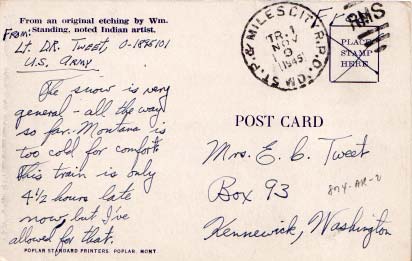 From an original etching by Wm.
Standing, noted Indian artist.
From:
Lt. D.R. Tweet, O-1845101
U.S. Army
The snow is very
general - all the way
so far. Montana is
too cold for comfort.
This train is only
4 1/2 hours late
now, but I've
allowed for that.
POPLAR STANDARD PRINTERS, POPLAR, MONT.
ST. P. & MILES CITY R.P.O.
TR. 1
NOV
1945
RMS
Free
PLACE
STAMP
HERE
POST CARD
Mrs. E. C. Tweet
Box 93
Kennewick, Washington
874-AR-2